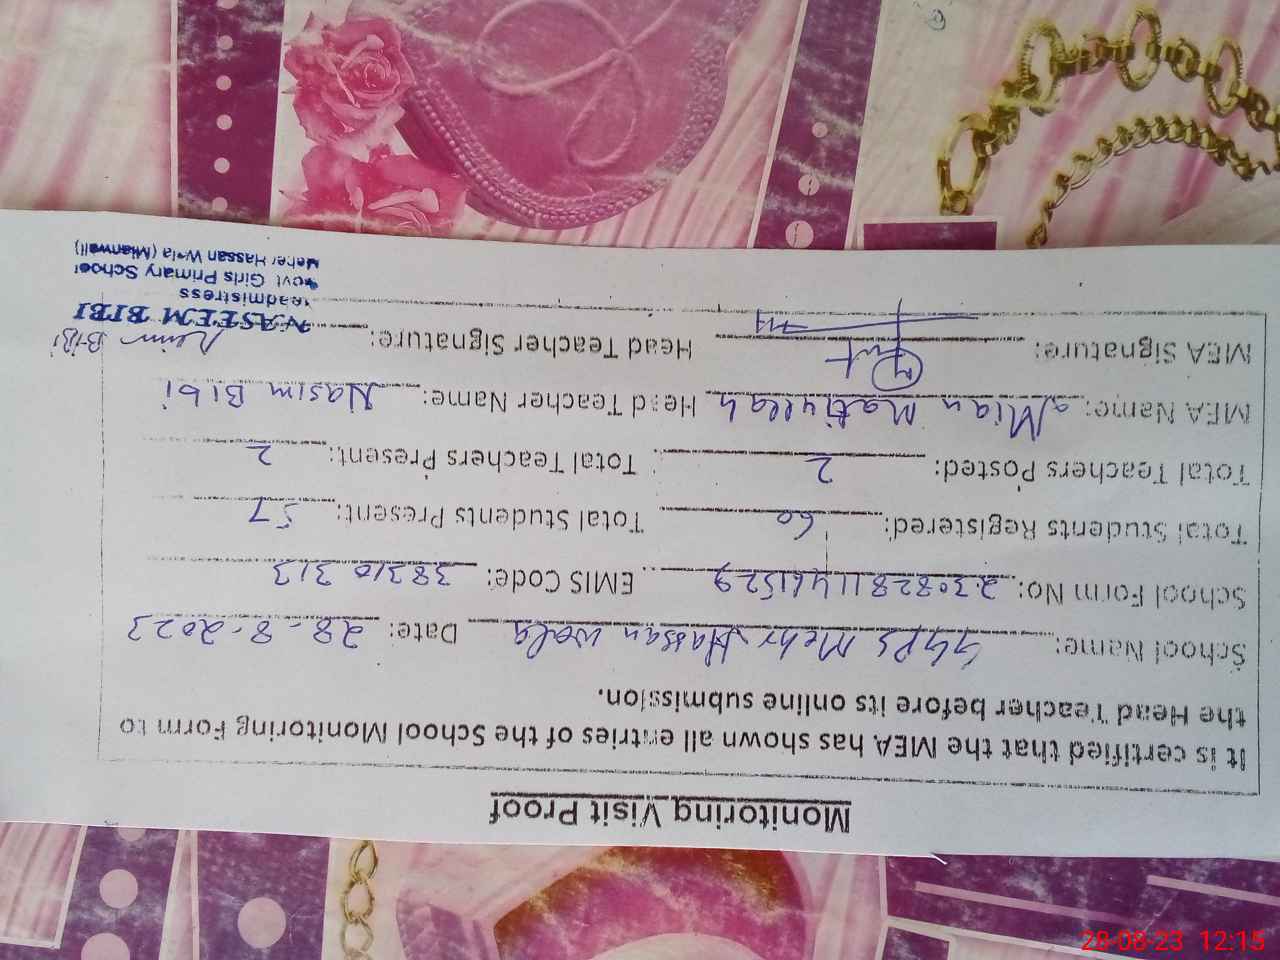 Monitoring Visit Proof
It is certified that the MEA has shown all entries of the School Monitoring Form to
the Head Teacher before its online submission.
School Name: GGPS Mehr Hassan wala Date: 28-8-2023
School Form No: 23082811461529 EMIS Code: 38310313
Total Students Registered: 60 Total Students Present: 57
Total Teachers Posted: 2 Total Teachers Present: 2
MEA Name: Mian Matiullah Head Teacher Name: Nasim Bibi
MEA Signature: Head Teacher Signature: Nasim BiBi
NASEEM BIBI
eadmistress
ovt Girls Primary School
Meher Hassan W la (Mianwali)
28-08-23 12:15